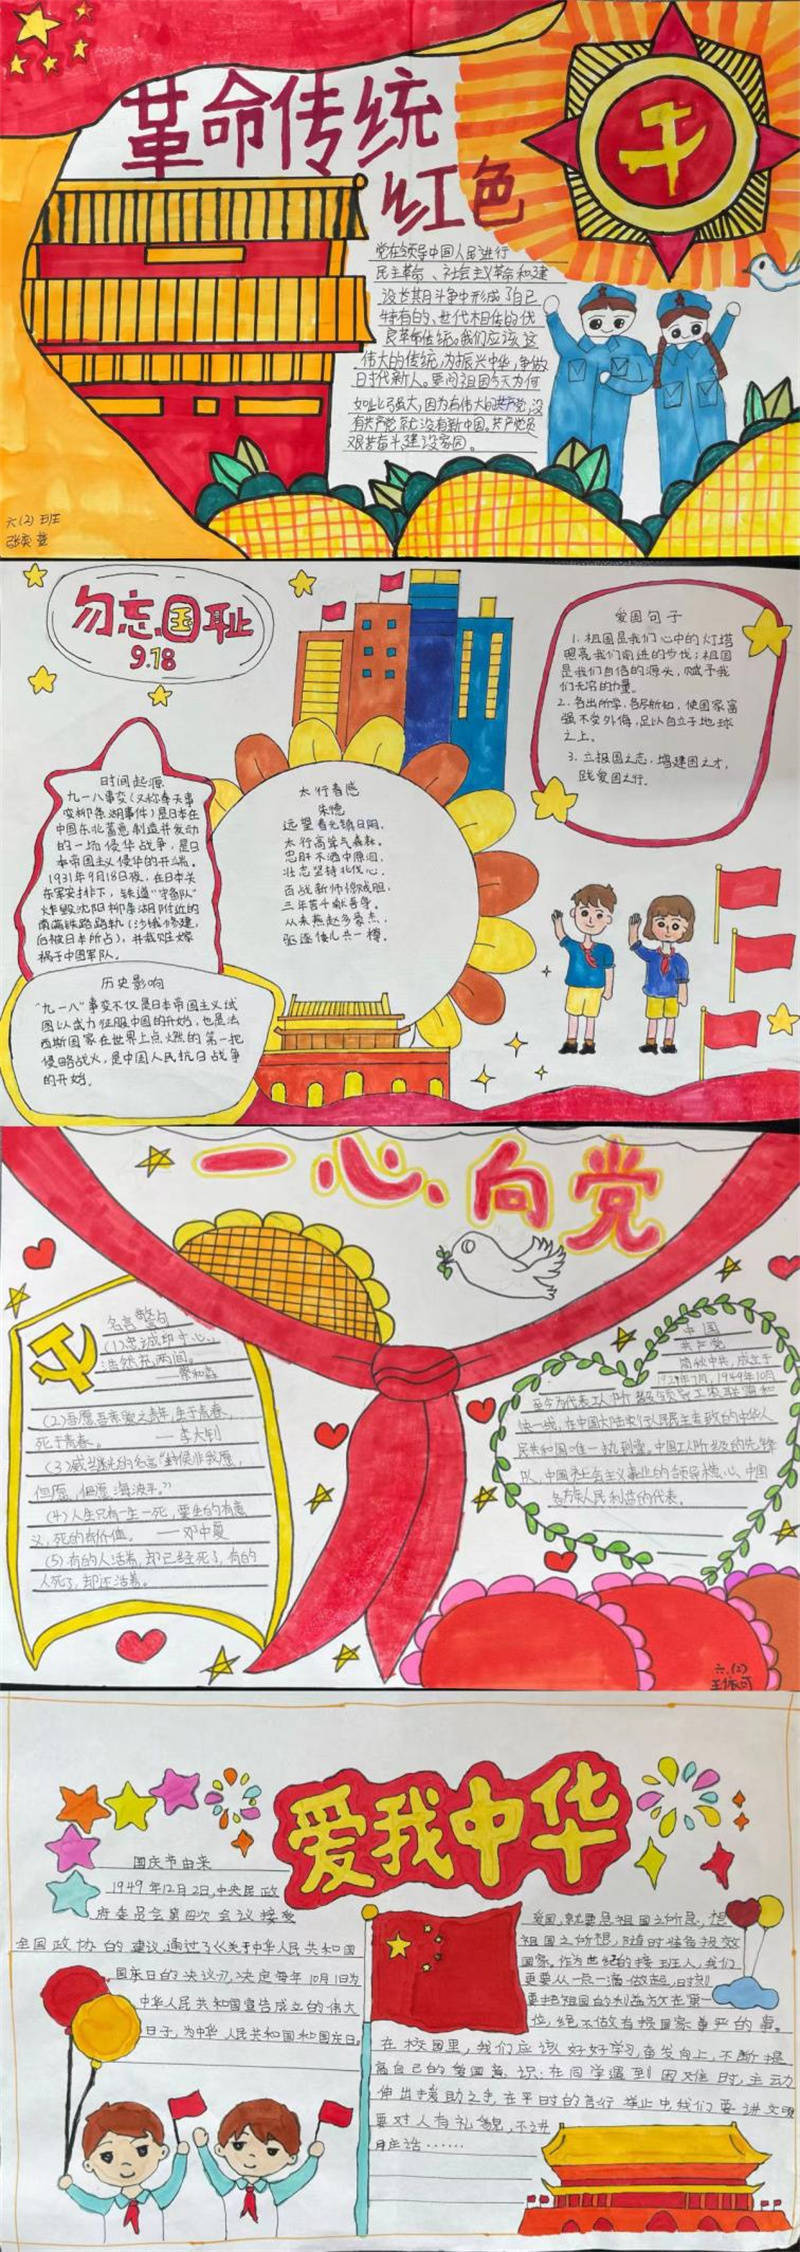 革命传统
红色
党在领导中国人民进行
民主革命、社会主义革命和建
设长期斗争中形成了自己
特有的、世代相传的优
良革命传统。我们应该这
伟大的传统,为振兴中华,争做
时代新人。要问祖国今天为何
如此强大,因为有伟大的共产党,没
有共产党就没有新中国。共产党员
艰苦奋斗,建设家园。
六(2)班
勿忘国耻
9.18
时间起源
九一八事变(又称奉天事
变柳条湖事件)是日本在
中国东北蓄意制造并发动
的一场侵华战争,是日
本帝国主义侵华的开端。
1931年9月18日夜,在日本关
东军安排下,铁道“守备队”
炸毁沈阳柳条湖附近的
南满铁路路轨(沙俄修建,
后被日本所占),并栽赃嫁
祸于中国军队。
历史影响
“九一八”事变不仅是日本帝国主义试
图以武力征服中国的开始,也是法
西斯国家在世界上点燃的第一把
侵略战火,是中国人民抗日战争
的开始。
太行春感
朱德
远望春光镇日阴,
太行高耸气森森。
忠肝不洒中原泪,
壮志坚持北伐心。
百战新师惊贼胆,
三年苦斗献吾身。
从来燕赵多豪杰,
驱逐倭儿共一樽。
爱国句子
1.祖国是我们心中的灯塔
照亮我们前进的步伐;祖国
是我们自信的源头,赋予我
们无穷的力量。
2.各出所学,各尽所知,使国家富
强不受外侮,足以自立于地球
之上。
3.立报国之志,增建国之才,
践爱国之行。
一心向党
名言警句
(1)忠诚印于心,
浩然充两间。
蔡和森
(2)吾愿吾亲爱之青年,生于青春,
死于青春。 —李大钊
(3)戚继光的名言“封侯非我愿,
但愿海波平。”
(4)人生只有一生一死,要生的有意
义,死的有价值。 —邓中夏
(5)有的人活着,却已经死了,有的
人死了,却还活着。
中国
共产党
简称中共,成立于
1921年7月,1949年10月
至今为代表工人阶级领导工农联盟和
统一战线,在中国大陆实行人民民主专政的中华人
民共和国唯一执政党。中国工人阶级的先锋
队,中国社会主义事业的领导核心,中国
各族人民利益的代表。
六.(2)
爱我中华
国庆节由来
1949年12月2日,中央人民政
府委员会第四次会议接受
全国政协的建议,通过了《关于中华人民共和国
国庆日的决议》,决定每年10月1日为
中华人民共和国宣告成立的伟大
日子,为中华人民共和国和国庆日。
爱国,就要急祖国之所急,想
祖国之所想,随时准备报效
国家。作为世纪的接班人,我们
更要从一点一滴做起,时刻
要把祖国的利益放在第一
位,绝不做有损国家尊严的事。
在校园里,我们应该好好学习,奋发向上,不断提
高自己的爱国意识;在同学遇到困难时,主动
伸出援助之手,在平时的言行举止中,我们要讲文明
要对人有礼貌,不讲
脏话……